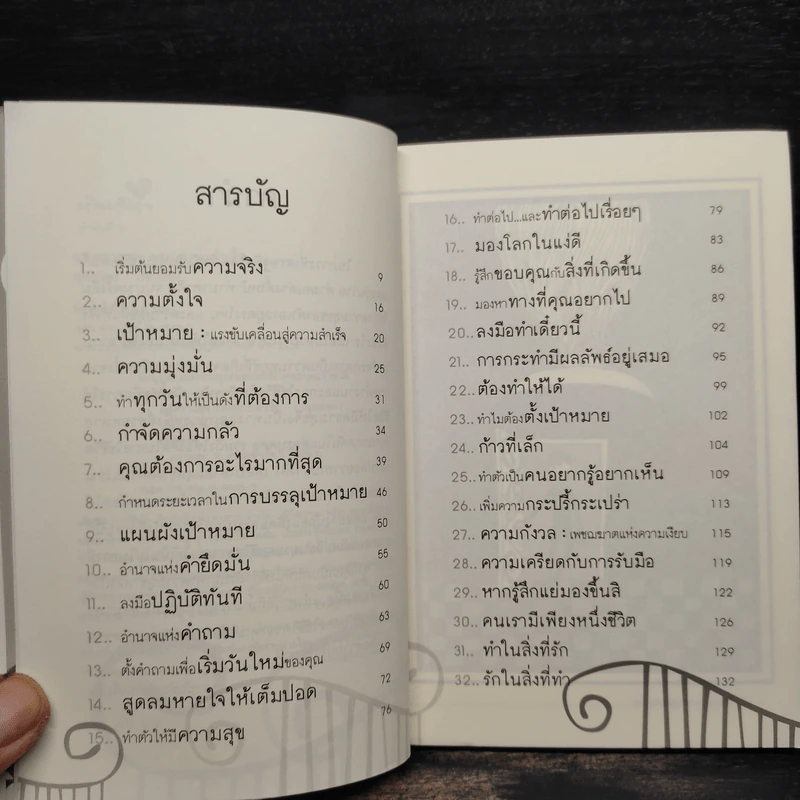 สารบัญ
1.. เริ่มต้นยอมรับความจริง 9
2.. ความตั้งใจ 16
3.. เป้าหมาย : แรงขับเคลื่อนสู่ความสำเร็จ 20
4.. ความมุ่งมั่น 25
5.. ทำทุกวันให้เป็นดังที่ต้องการ 31
6.. กำจัดความกลัว 34
7.. คุณต้องการอะไรมากที่สุด 39
8.. กำหนดระยะเวลาในการบรรลุเป้าหมาย 46
9.. แผนผังเป้าหมาย 50
10.. อำนาจแห่งคำยึดมั่น 55
11.. ลงมือปฏิบัติทันที 60
12.. อำนาจแห่งคำถาม 63
13.. ตั้งคำถามเพื่อเริ่มวันใหม่ของคุณ 69
14.. สูดลมหายใจให้เต็มปอด 72
15.. ทำตัวให้มีความสุข 76
16.. ทำต่อไป...และทำต่อไปเรื่อยๆ 79
17.. มองโลกในแง่ดี 83
18.. รู้สึกขอบคุณกับสิ่งที่เกิดขึ้น 86
19.. มองหาทางที่คุณอยากไป 89
20.. ลงมือทำเดี๋ยวนี้ 92
21.. การกระทำมีผลลัพธ์อยู่เสมอ 95
22.. ต้องทำให้ได้ 99
23.. ทำไมต้องตั้งเป้าหมาย 102
24.. ก้าวที่เล็ก 104
25.. ทำตัวเป็นคนอยากรู้อยากเห็น 109
26.. เพิ่มความกระปรี้กระเปร่า 113
27.. ความกังวล : เพชฌฆาตแห่งความเงียบ 115
28.. ความเครียดกับการรับมือ 119
29.. หากรู้สึกแย่มองขึ้นสิ 122
30.. คนเรามีเพียงหนึ่งชีวิต 126
31.. ทำในสิ่งที่รัก 129
32.. รักในสิ่งที่ทำ 132